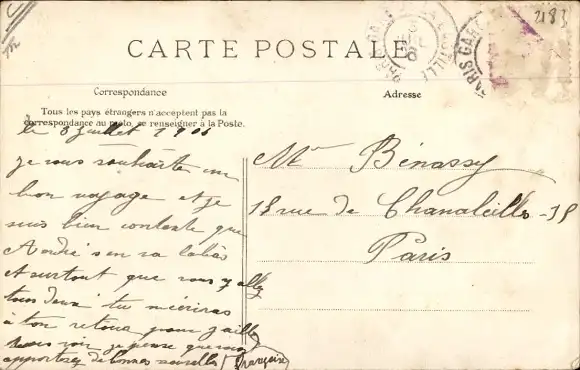 2183
CARTE POSTALE
PARIS GARE
PARIS GARE
Correspondance
Adresse
Tous les pays étrangers n'acceptent pas la
correspondance au recto, se renseigner à la Poste.
le 8 juillet 190
je vous souhaite un
bon voyage et je
suis bien contente que
André s'en va labàs
et surtout que vous y allez
tous deux tu m'ecriras
à ton retour pour j'aille
vous voir je pense que vous
apporterez de bonnes nouvelles
Françoise
Mr Bénassy
18 rue de Chanaleilles - 18
Paris